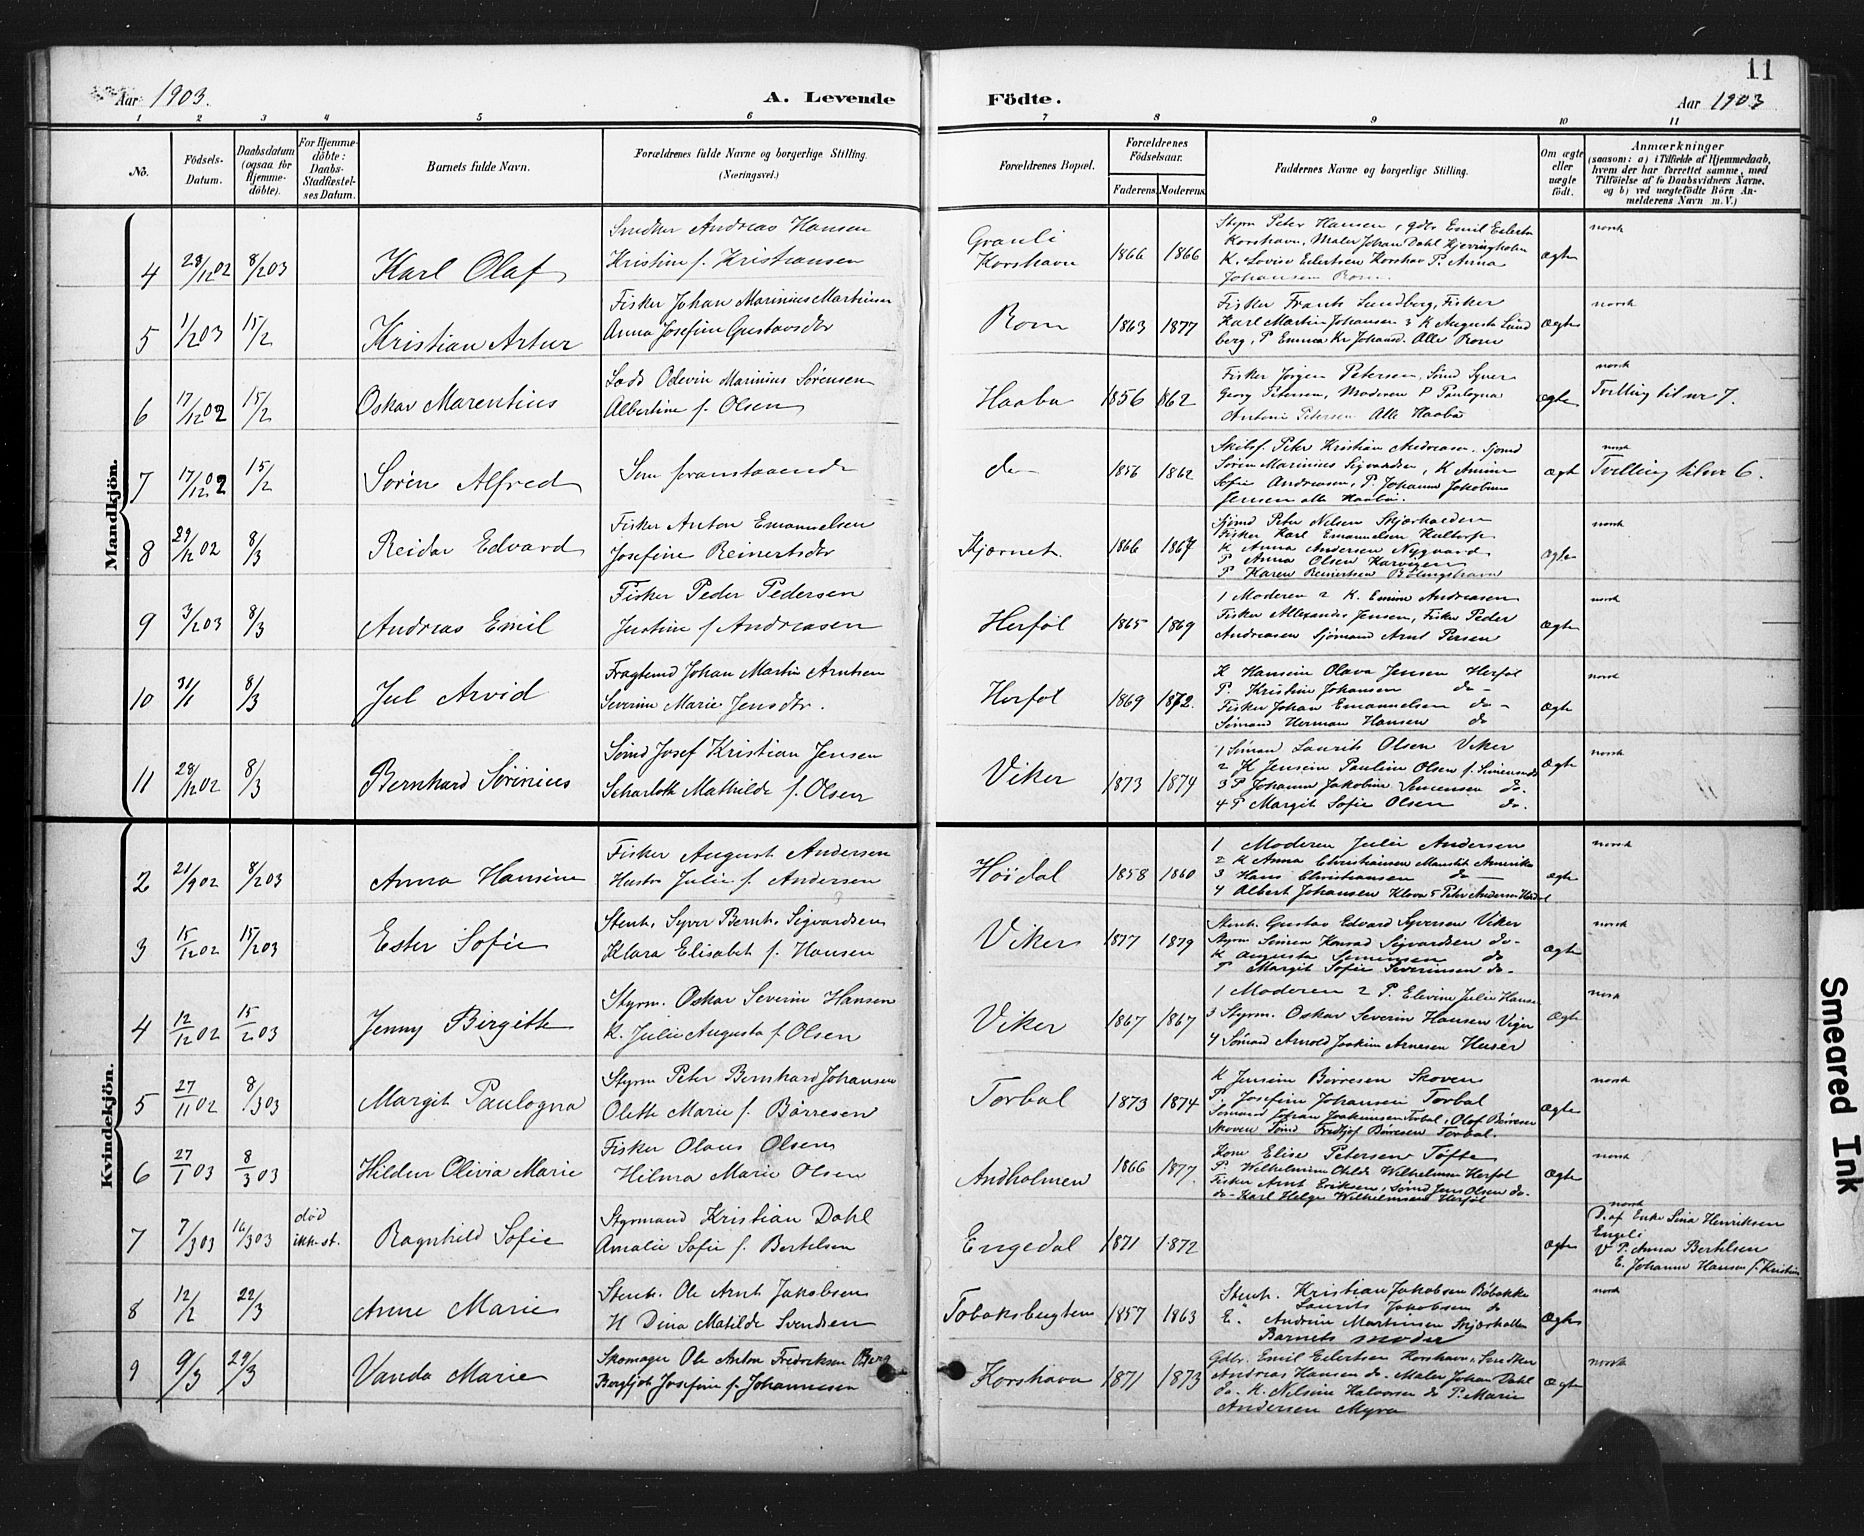 11
Aar 1903.
A. Levende
Födte.
Aar 1903
1 2 3 4 5 6 7 8 9 10 11
No.
Födsels-Datum.
Daabsdatum (ogsaa for Hjemme-döbte).
For Hjemme-döbte: Daabs-Stadfæstel-ses Datum.
Barnets fulde Navn.
Forældrenes fulde Navne og borgerlige Stilling.
(Næringsvei.)
Forældrenes Bopæl.
Forældrenes Födselsaar.
Faderens. Moderens.
Faddernes Navne og borgerlige Stilling.
Om ægte eller uægte födt.
Anmærkninger
(saasom: a) i Tilfælde af Hjemmedaab,
hvem der har forrettet samme, med
Tilföielse af to Daabsvidners Navne,
og b) ved uægtefödte Börn An-
melderens Navn m. V.)
Mandkjön.
4 28/12 02 8/2 03 Karl Olaf
Smedker Andreas Hansen
Kristine f. Kristiansen
Grauli
Korshavn
1866 1866
Styrm Peter Hansen, gdbr Emil Eilertsn
Korshavn, Maler Johan Dahl Kjerringholm
K. Lovise Eilertsen Korshav P. Anna
Johansen Rom.
ægte
norsk
5 1/2 03 15/2 Kristian Artur
Fisker Johan Marinius Martinsen
Anna Josefine Gustavsdtr
Rom
1863 1877
Fisker Frants Lundberg, Fisker
Karl Martin Johansen 3 K Augusta Lund
berg, P Emma Kr Johansd. Alle Rom
ægte
norsk
6 17/12 02 15/2 Oskar Marentius
Lods Odevin Marinius Sørensen
Albertine f. Olsen
Haabu
1856 1862
Fisker Jørgen Petersen, Sømd Syver
Georg Petersen, Moderen P Paulogna
Antonie Petersen Alle Haabu
ægte
norsk
Tvilling til nr 7.
7 17/12 02 15/2 Søren Alfred
Som foranstaaende
do
1856 1862
Skibsf. Peter Kristian Andreasen, Sjømd
Søren Marinius Sigvardsen, K Amine
Sofie Andreasen, P. Johanne Jakobine
Jensen alle Haabu.
ægte
norsk
Tvilling til nr 6.
8 29/12 02 8/3 Reidar Edvard
Fisker Anton Emanuelsen
Josefine Reinertsdtr
Kjærnet.
1866 1867
Sjømd Peter Nilsen Skjærhalden
Fisker Karl Emanuelsen Kultorp
K Anna Andersen Nygaard
P Anna Olsen Karvigen
P Karen Reinertsen Bølingshavn
ægte
norsk
9 3/2 03 8/3 Andreas Emil
Fisker Peder Pedersen
Justine f Andreasen
Herføl
1865 1869
1 Moderen 2 K. Emine Andreasen
Fisker Allexander Jensen, Fisker Peder
Andreasen Sjømand Arnt Persen
ægte
norsk
10 31/1 8/3 Jul Arvid
Fragtemd Johan Martin Arntsen
Severine Marie Jensdtr.
Herføl
1869 1872.
K Hansine Olava Jensen Herføl
P. Kristine Johansen do
Fisker Johan Emanuelsen do
Sømand Herman Hansen do
ægte
norsk
11 28/12 02 8/3 Bernhard Sørinius
Sømd Josef Kristian Jensen
Scharlotte Mathilde f. Olsen
Viker
1873 1874
1 Sømand Laurits Olsen Viker
2 K Jensine Pauline Olsen f. Simensnds
3 P Johanne Jakobine Simensen do.
4 P Margit Sofie Olsen do.
ægte
norsk
Kvindekjön.
2 21/9 02 8/2 03 Anna Hansine
Fisker August Andersen
Hustru Julie f. Andersen
Høidal
1858 1860
1 Moderen Julie Andersen
2 K Anna Christiansen Amerika
3 Hans Christiansen do
4 Albert Johansen Klova 5 Peter Andersen Høidal
ægte
norsk
3 15/12 02 15/2 03 Ester Sofie
Stenh. Syver Bernt. Sigvardsen
Klara Elisabet f. Hansen
Viker
1877 1879
Stenh. Gustav Edvard Syversen Viker
Styrm Simen Konrad Sigvardsen do.
K Augusta Simensen do
P Margit Sofie Severinsen do.
ægte
norsk
4 12/12 02 15/2 03 Jenny Birgitte
Styrm. Oskar Severin Hansen
K. Julie Augusta f. Olsen
Viker
1867 1867
1 Moderen 2 P. Elevine Julie Hansen
3 Styrm. Oskar Severin Hansen Viger
4 Sømand Arnold Joakim Arnesen Huser
ægte
norsk
5 27/11 02 8/3 03 Margit Paulogna
Styrm Peter Bernhard Johansen
Olette Marie f. Børresen
Torbal
1873 1874
K Jensine Børresen Skoven
P. Josefine Johansen Torbal
Sømand Johan Joakimsen Torbal, Olaf Børresen
Skoven Sømd Fredtjof Børresen Torbal.
ægte
norsk
6 27/1 03 8/3 03 Hildur Olivia Marie
Fisker Olaus Olsen
Hilma Marie Olsen
Andholmen
1866 1877.
Kone Elise Petersen Tofte
P. Wilhelmine Otilde Wilhelmsen Herføl
Fisker Arnt Eriksen, Sømd Jens Olsen do.
do- Karl Helge Wilhelmsen Herføl
ægte
norsk
7 7/3 03 16/3 03 død ikke st. Ragnhild Sofie
Styrmand Kristian Dahl
Amalie Sofie f. Bertelsen
Engedal
1871 1872
ægte
norsk
D. af Enke Sina Henriksen
Engeli
V P. Anna Bertelsen
E. Johanne Hansen f. Kristian
8 12/2 22/3 Anne Marie
Stenh. Ole Arnt Jakobsen
H Dina Matilde Svendsen
Tobaksbugten
1857 1863
Stenh. Kristian Jakobsen Bøbakke
Laurits Jakobsen do
E. Andrine Martinsen Skjærhalla
Barnets moder
ægte
norsk
9 9/3 29/3 Vanda Marie
Skomager Ole Anton Fredriksen Berg
Bergljot Josefine f. Johannesen
Korshavn
1871 1873
Gdbr. Emil Eilertsen Korshavn, Smedker
Andreas Hansen do. Maler Johan Dahl
do. K. Nilsine Halvorsen do P. Marie
Andersen Myra
ægte
norsk
Smeared Ink